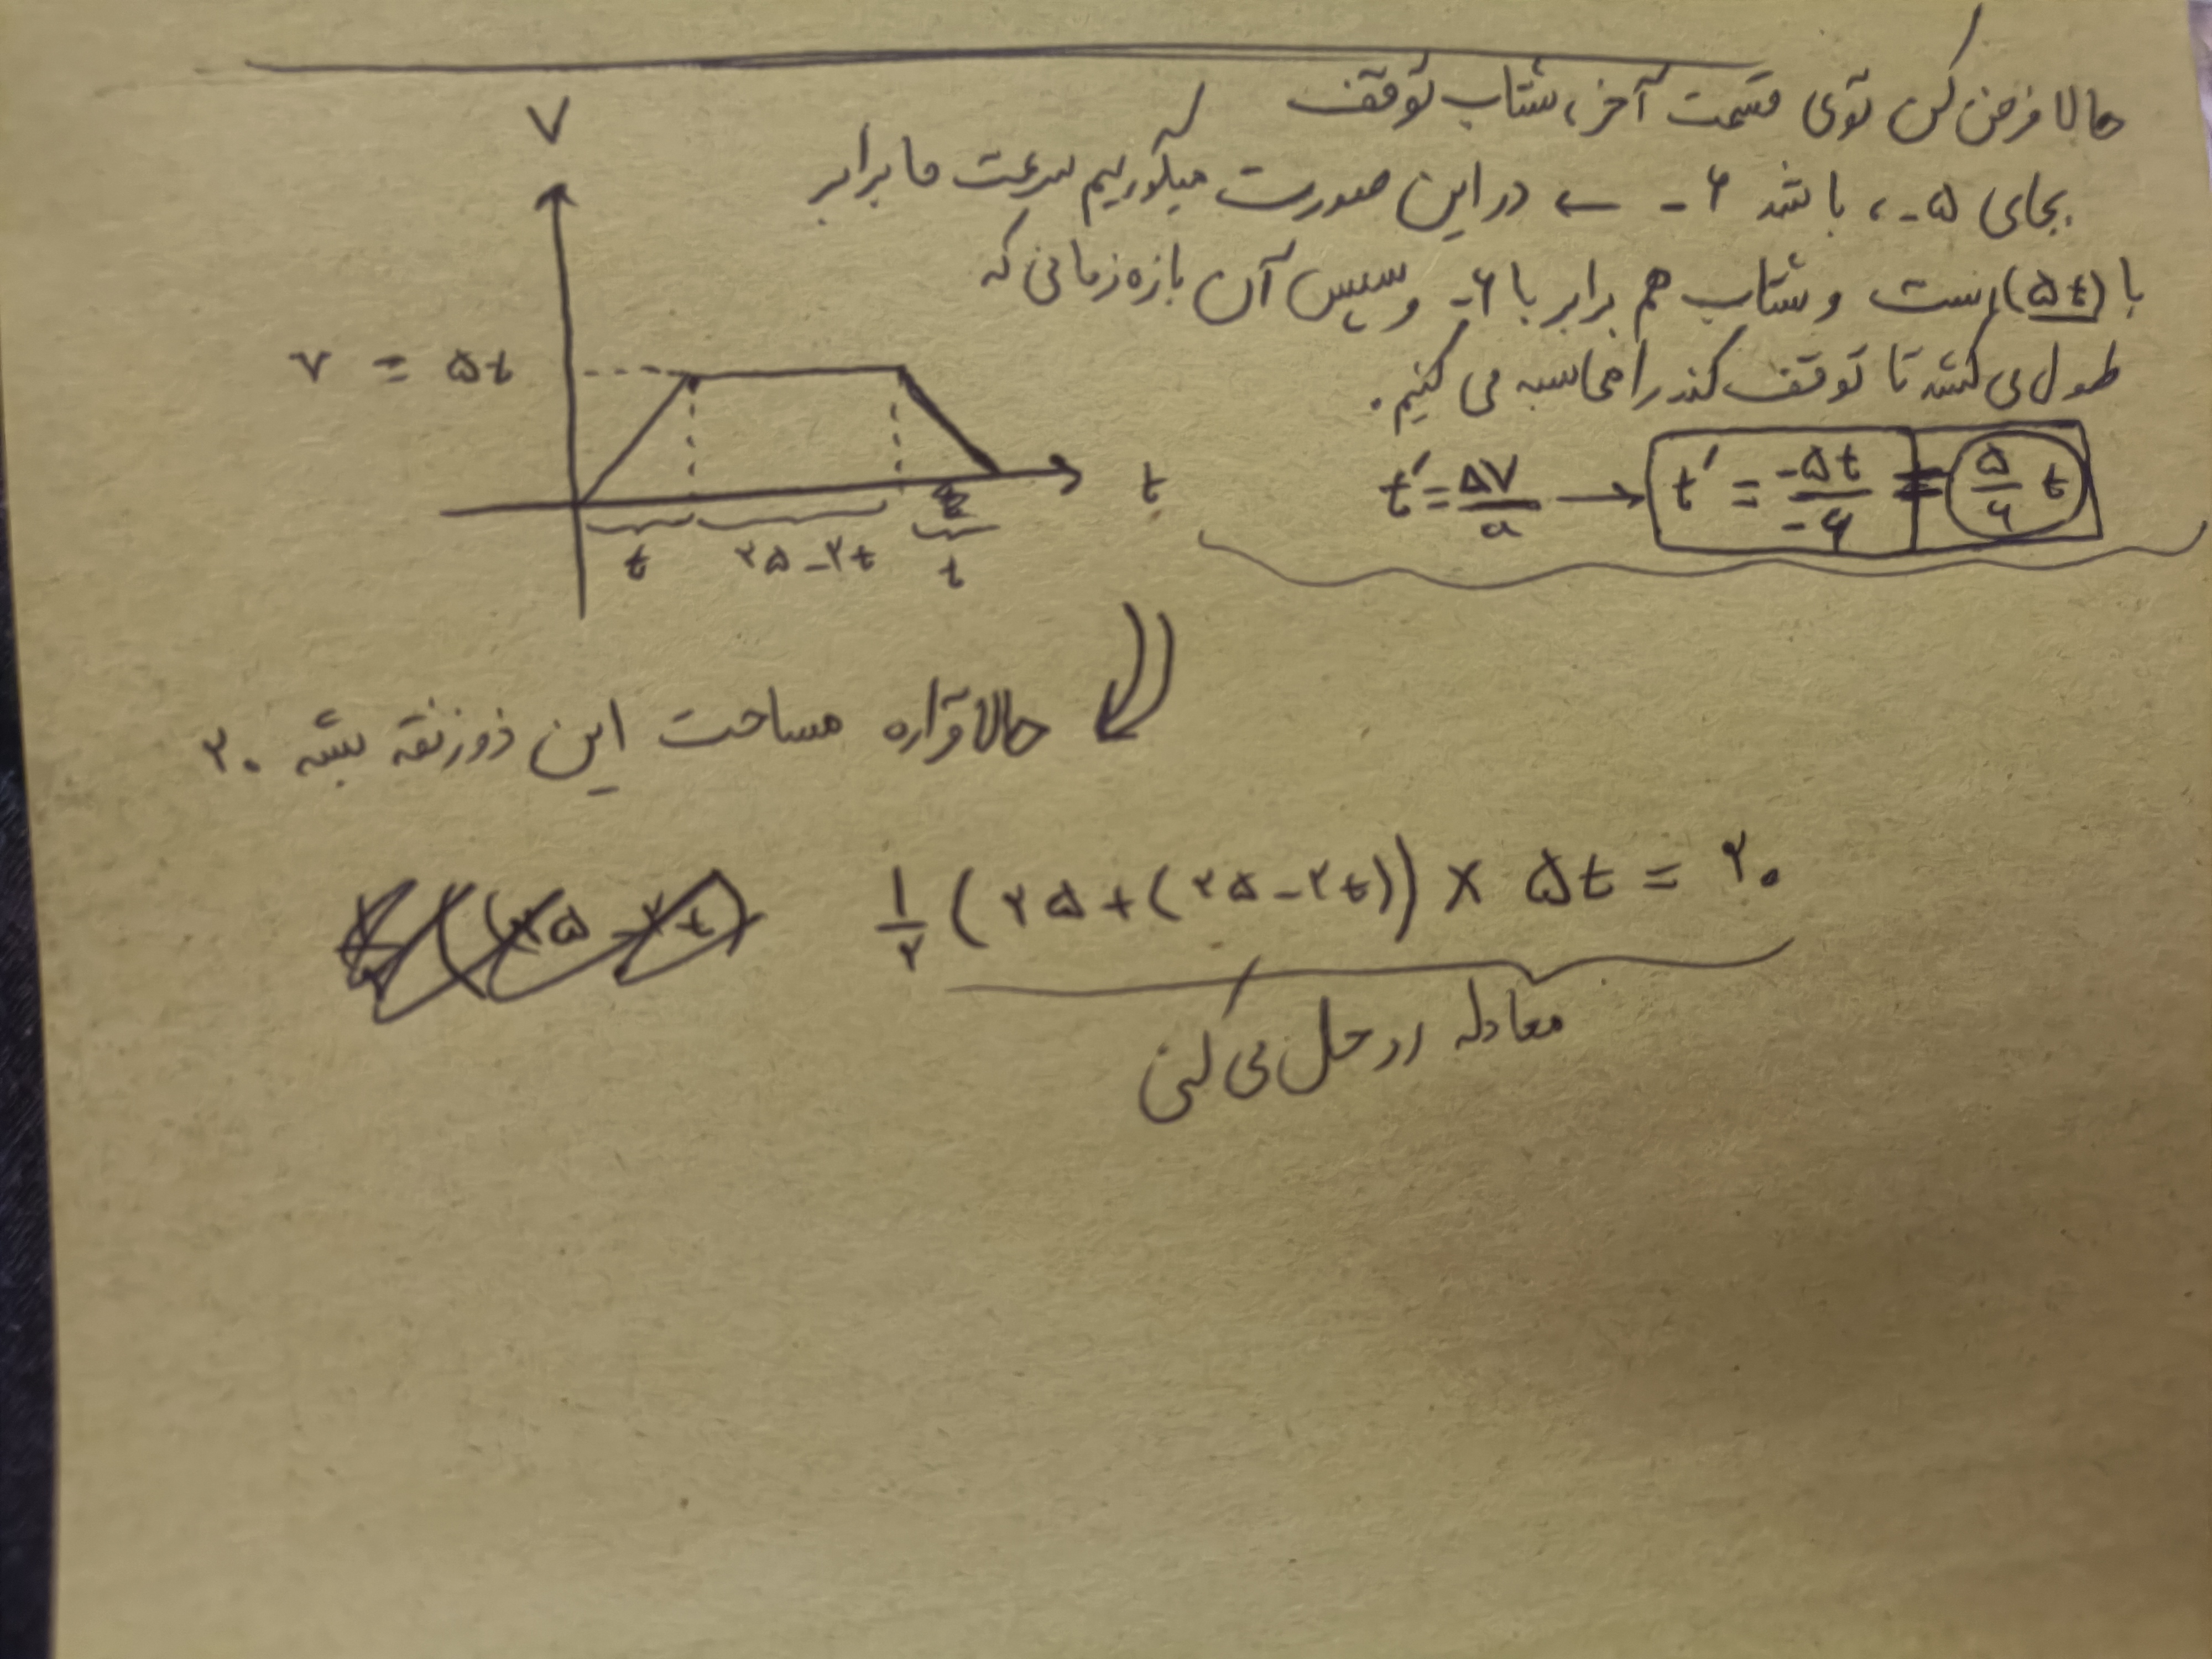 حالا فرض کن توی قسمت آخر، شتاب توقف
بجای ۵-، باشد ۶- ← در این صورت میگوییم سرعت ما برابر
با (۵t) است و شتاب هم برابر با ۶- و سپس آن بازه زمانی که
طول می کشه تا توقف کند را محاسبه می کنیم.
t' = ΔV/a → t' = -۵t/-۶ = ۵/۶ t
V
v = ۵t
t
t ۲۵-۲t t
حالا قراره مساحت این ذوزنقه بشه ۲۰
۱/۲ (۲۵+(۲۵-۲t)) × ۵t = ۲۰
معادله رو حل می کنی